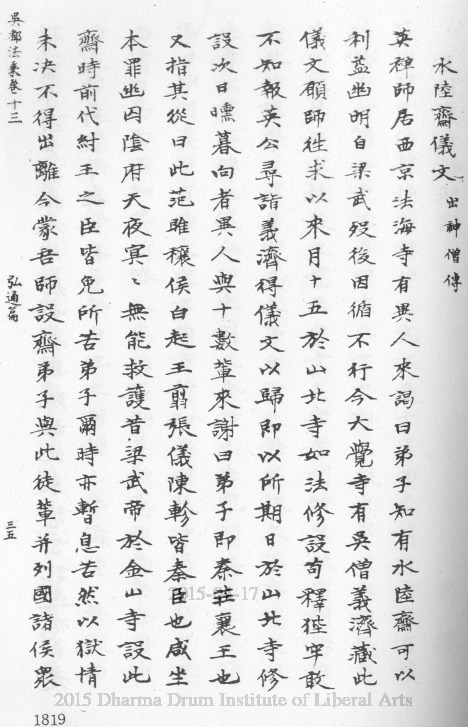 水陸齋儀文 出神僧傳
英禪師居西京法海寺有異人來謁曰弟子知有水陸齋可以
利益幽明自梁武歿後因循不行今大覺寺有吳僧義濟藏此
儀文願師徃求以來月十五於山北寺如法修設苟釋狴牢敢
不知報英公尋詣義濟得儀文以歸即以所期日於山北寺修
設次日曛暮向者異人與十數輩來謝曰弟子即秦莊襄王也
又指其從曰此范雎穰侯白起王翦張儀陳軫皆秦臣也咸坐
本罪幽囚陰府天夜冥〻無能救護昔梁武帝於金山寺設此
齋時前代紂王之臣皆免所苦弟子爾時亦暫息苦然以獄情
未決不得出離今蒙吾師設齋弟子與此徒輩并列國諸侯衆
吳都法乘卷十三
弘通篇
三五
2015-03-17
2015 Dharma Drum Institute of Liberal Arts
1819